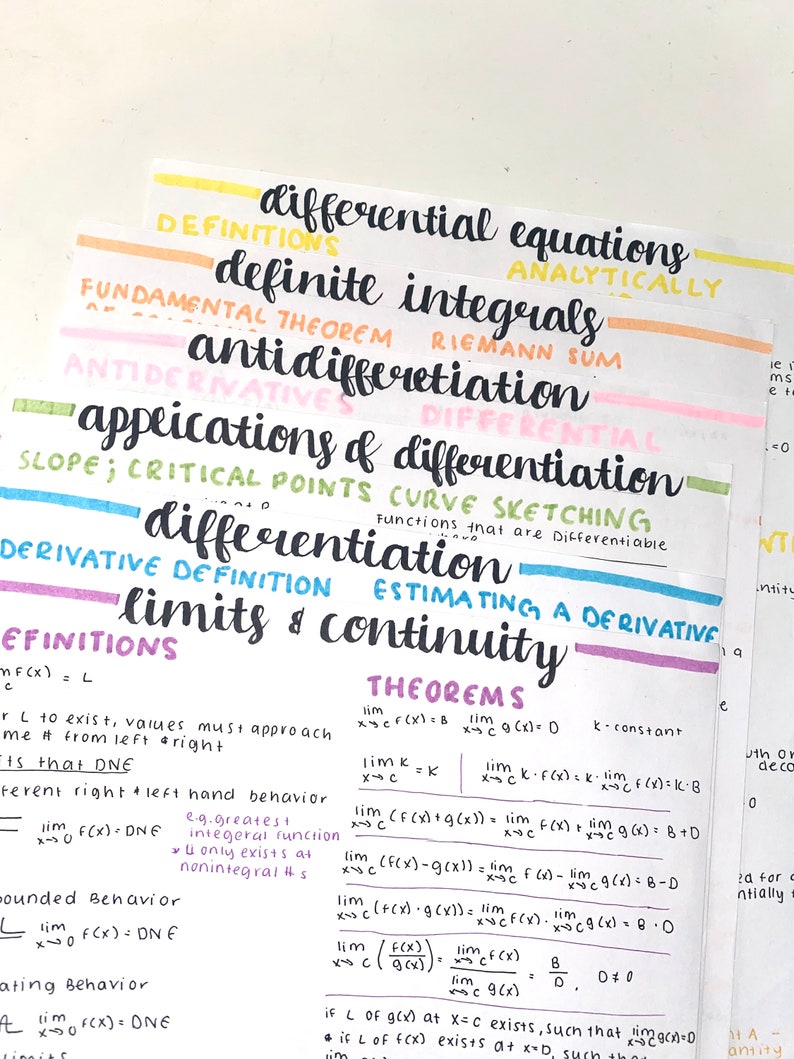 differential equations
DEFINITIONS
ANALYTICALLY
definite integrals
FUNDAMENTAL THEOREM RIEMANN SUM
antidifferetiation
ANTIDERIVATIVES DIFFERENTIAL
applications & differentiation
SLOPE; CRITICAL POINTS CURVE SKETCHING
Functions that are Differentiable
differentiation
DERIVATIVE DEFINITION ESTIMATING A DERIVATIVE
limits & continuity
EFINITIONS
f(x) = L
c
L to exist, values must approach
me # from left & right
ts that DNE
ferent right & left hand behavior
lim x→0 f(x) = DNE
e.g. greatest
integeral function
* L only exists at
nonintegral #s
ounded Behavior
lim x→0 f(x) = DNE
ating Behavior
lim x→0 f(x) = DNE
THEOREMS
lim x→c f(x) = B lim x→c g(x) = D K - constant
lim x→c K = K lim x→c K · f(x) = K · lim x→c f(x) = K · B
lim x→c (f(x) + g(x)) = lim x→c f(x) + lim x→c g(x) = B + D
lim x→c (f(x) - g(x)) = lim x→c f(x) - lim x→c g(x) = B - D
lim x→c (f(x) · g(x)) = lim x→c f(x) · lim x→c g(x) = B · D
lim x→c (f(x)/g(x)) = lim x→c f(x) / lim x→c g(x) = B/D, D ≠ 0
if L of g(x) at x=c exists, such that lim x→c g(x) = D
& if L of f(x) exists at x=D, such that
lim